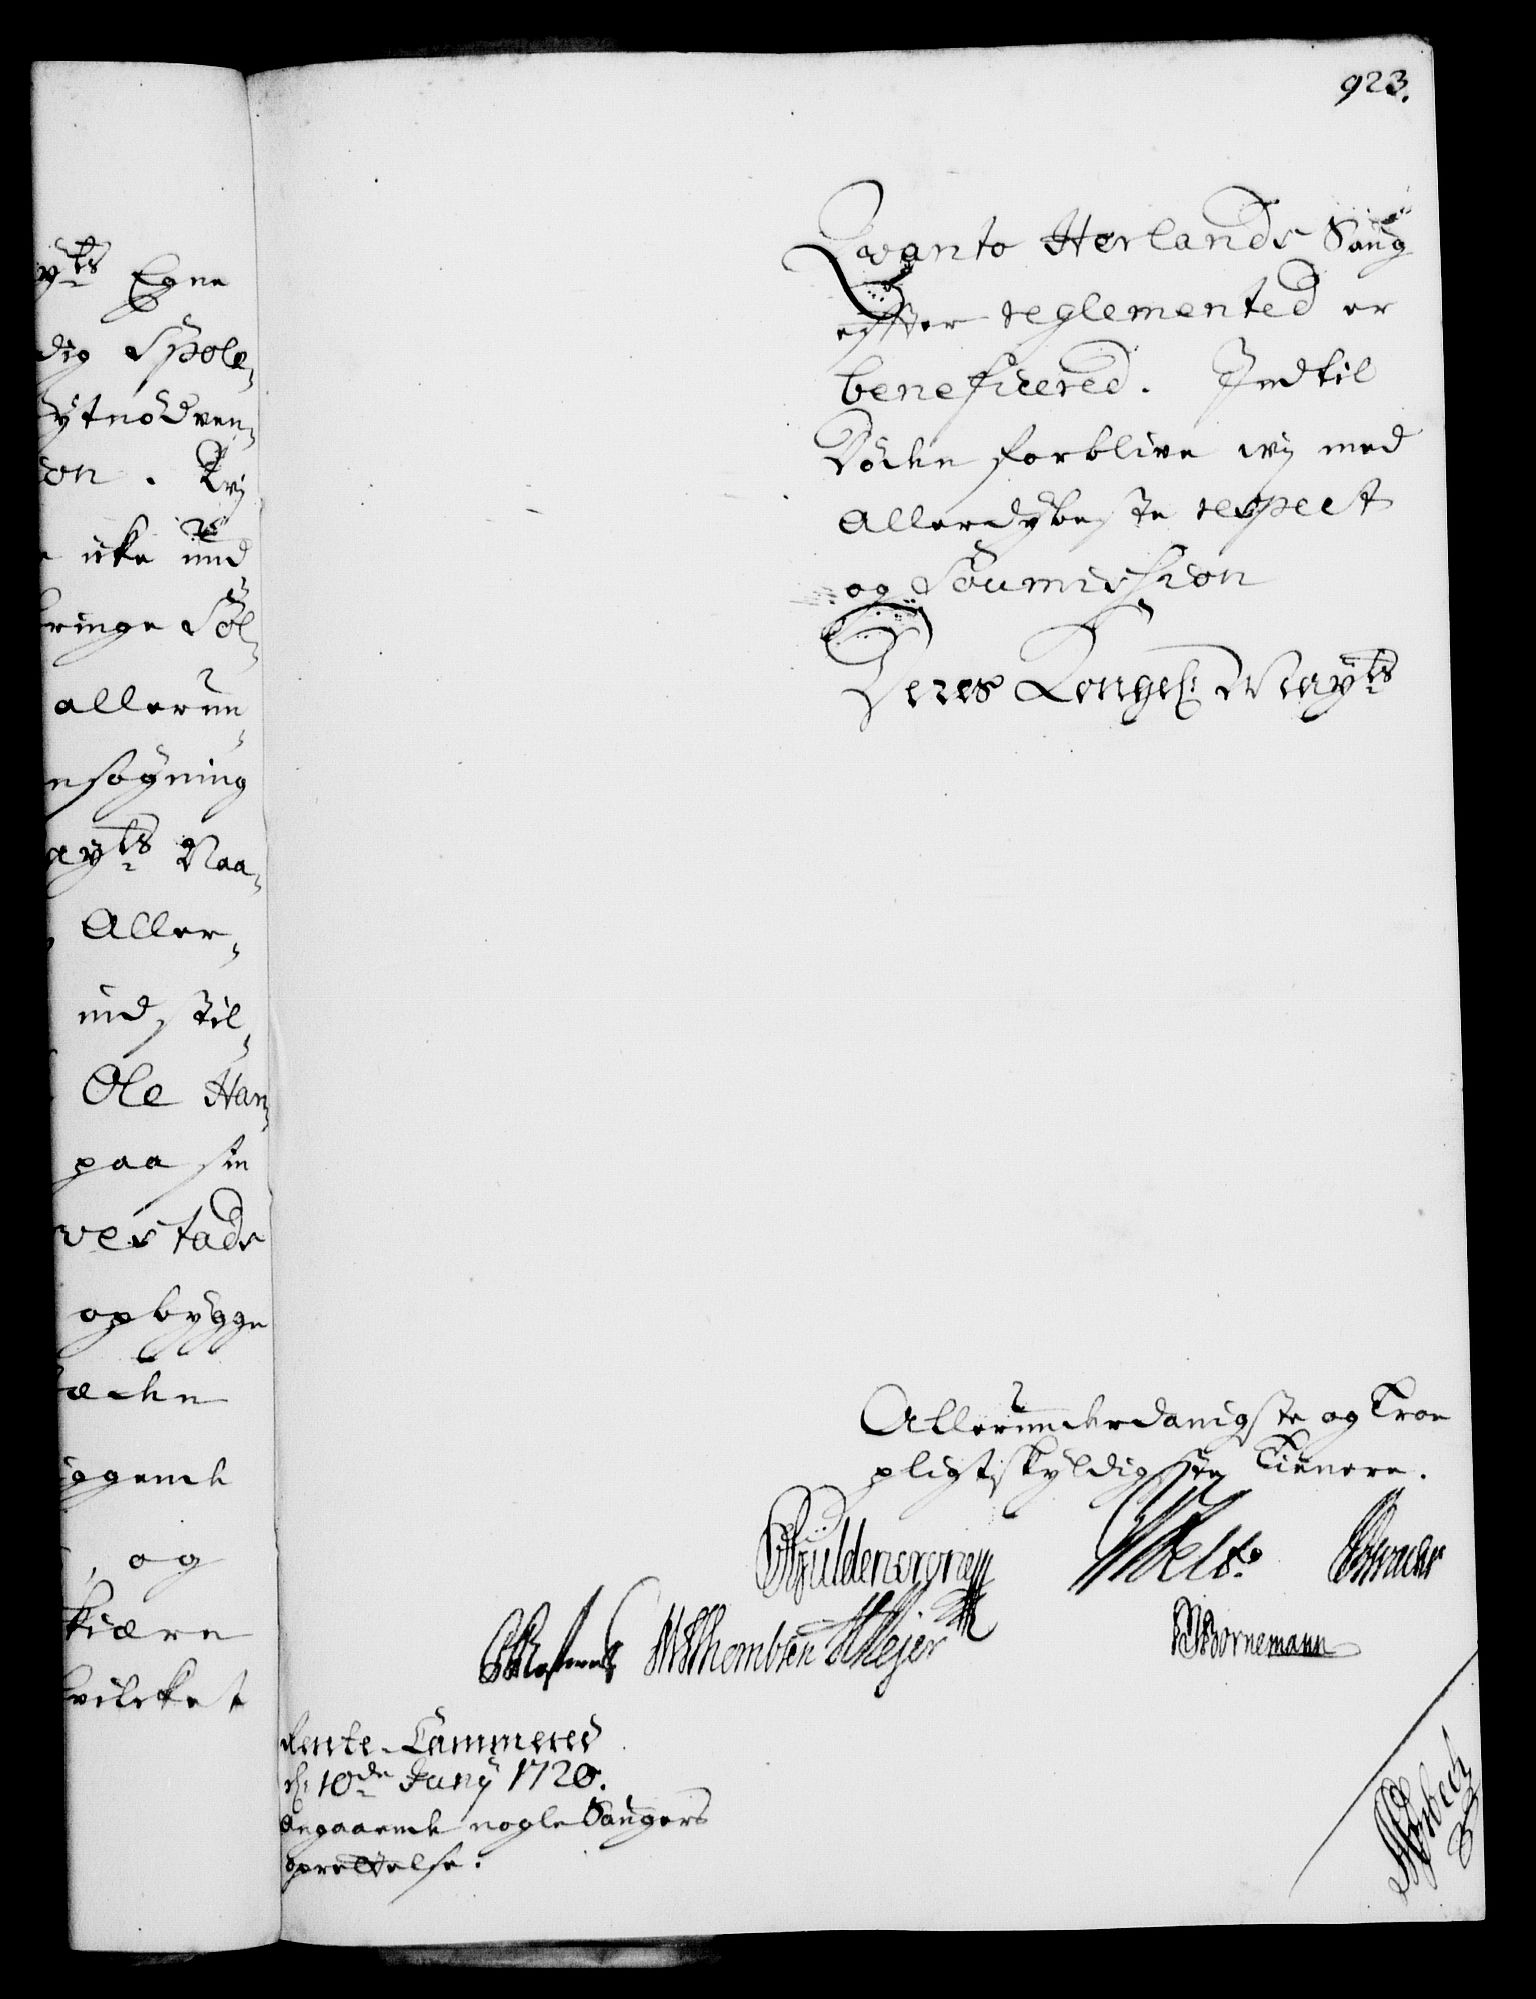 923.
Qvanto Herlands Saug
effter reglemented er
beneficered. Indtil
Döden forblive wij med
Allerdybeste respect
og Soumission
Deres Kongel: Mayts
Allerunderdanigste og Troe
pligtskyldigste Tienere.
Güldencrone
W Thombsen Meyer
Bornemann
Rente-Cammered
d: 10de Junij 1720.
Angaaende nogle Saugers
oprettelse.
yts Egne
dig Spole-
ytnödven-
on. Wij
icke und-
bringe Sol-
allerun-
nsögning
ayts Naa-
Aller-
indstil-
Ole Han-
paa sin
vestads
opbygge
iggende
, og
hvilcket